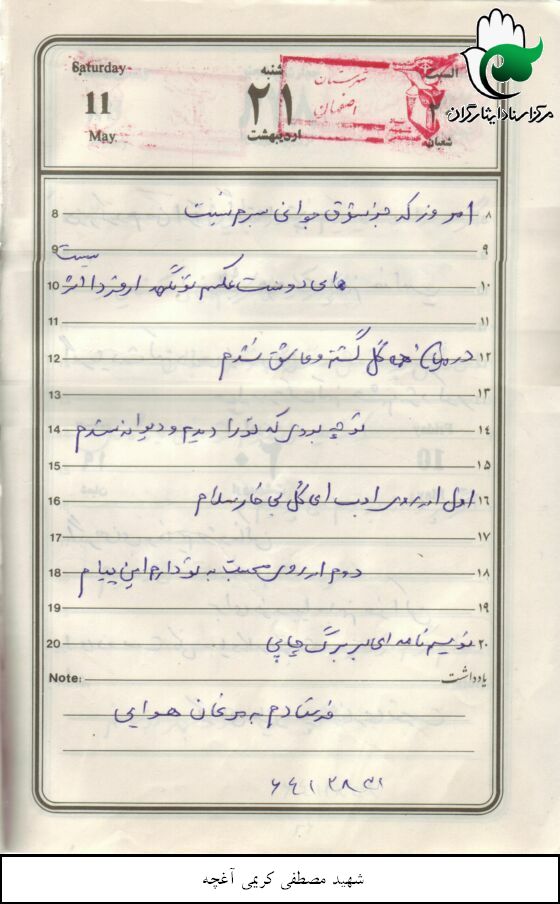 مرکز اسناد ایثارگران
Saturday
11
May.
شنبه
۲۱
اردیبهشت
السبت
۲
شعبان
شهرستان
اصفهان
8 امروز که جز شوق جوانی سرم نیست ۸
9 ۹
نیست
10 های دوست عکسم تو نگهدار فردا اثر ۱۰
11 ۱۱
12 در میان همه گل گشته و عاشق شدم ۱۲
13 ۱۳
14 تو چه بودی که تو را دیدم و دیوانه شدم ۱۴
15 ۱۵
16 اول از روی ادب ای گل بی خار سلام ۱۶
17 ۱۷
18 دوم از روی محبت به تو دارم این پیام ۱۸
19 ۱۹
20 نویسم نامه ای بر برگ چاپی ۲۰
Note: یادداشت
فرستادم به مرغان هوایی
شهید مصطفی کریمی آغچه